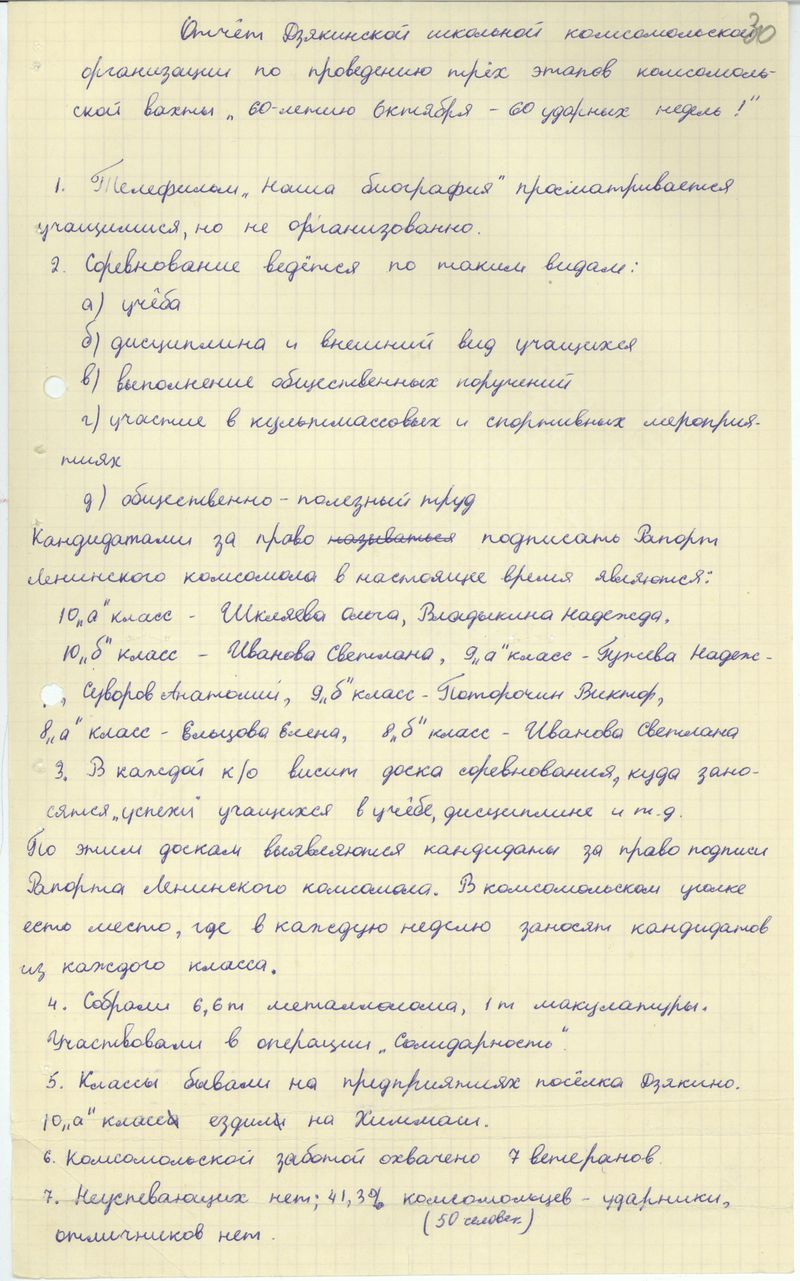 30
Отчёт Дзякинской школьной комсомольской
организации по проведению трёх этапов комсомоль-
ской вахты „60-летию Октября – 60 ударных недель!"
1. Телефильм „Наша биография" просматривается
учащимися, но не организованно.
2. Соревнование ведётся по таким видам:
а) учёба
б) дисциплина и внешний вид учащихся
в) выполнение общественных поручений
г) участие в культмассовых и спортивных мероприя-
тиях
д) общественно – полезный труд
Кандидатами за право называться подписать Рапорт
Ленинского комсомола в настоящее время являются:
10„а" класс – Шкляева Ольга, Владыкина Надежда,
10„б" класс – Иванова Светлана, 9„а" класс – Гужева Надеж-
, Суворов Анатолий, 9„б" класс – Поторочин Виктор,
8„а" класс – Ельцова Елена, 8„б" класс – Иванова Светлана
3. В каждой к/о висит доска соревнования, куда зано-
сятся „успехи" учащихся в учёбе, дисциплине и т.д.
По этим доскам выявляются кандидаты за право подписи
Рапорта Ленинского комсомола. В комсомольском уголке
есть место, где в каждую неделю заносят кандидатов
из каждого класса.
4. Собрали 6,6т металлолома, 1т макулатуры.
Участвовали в операции „Солидарность".
5. Классы бывали на предприятиях посёлка Дзякино.
10„а" класс ездил на Химмаш.
6. Комсомольской заботой охвачено 7 ветеранов.
7. Неуспевающих нет; 41,3% комсомольцев – ударники,
(50 человек)
отличников нет.